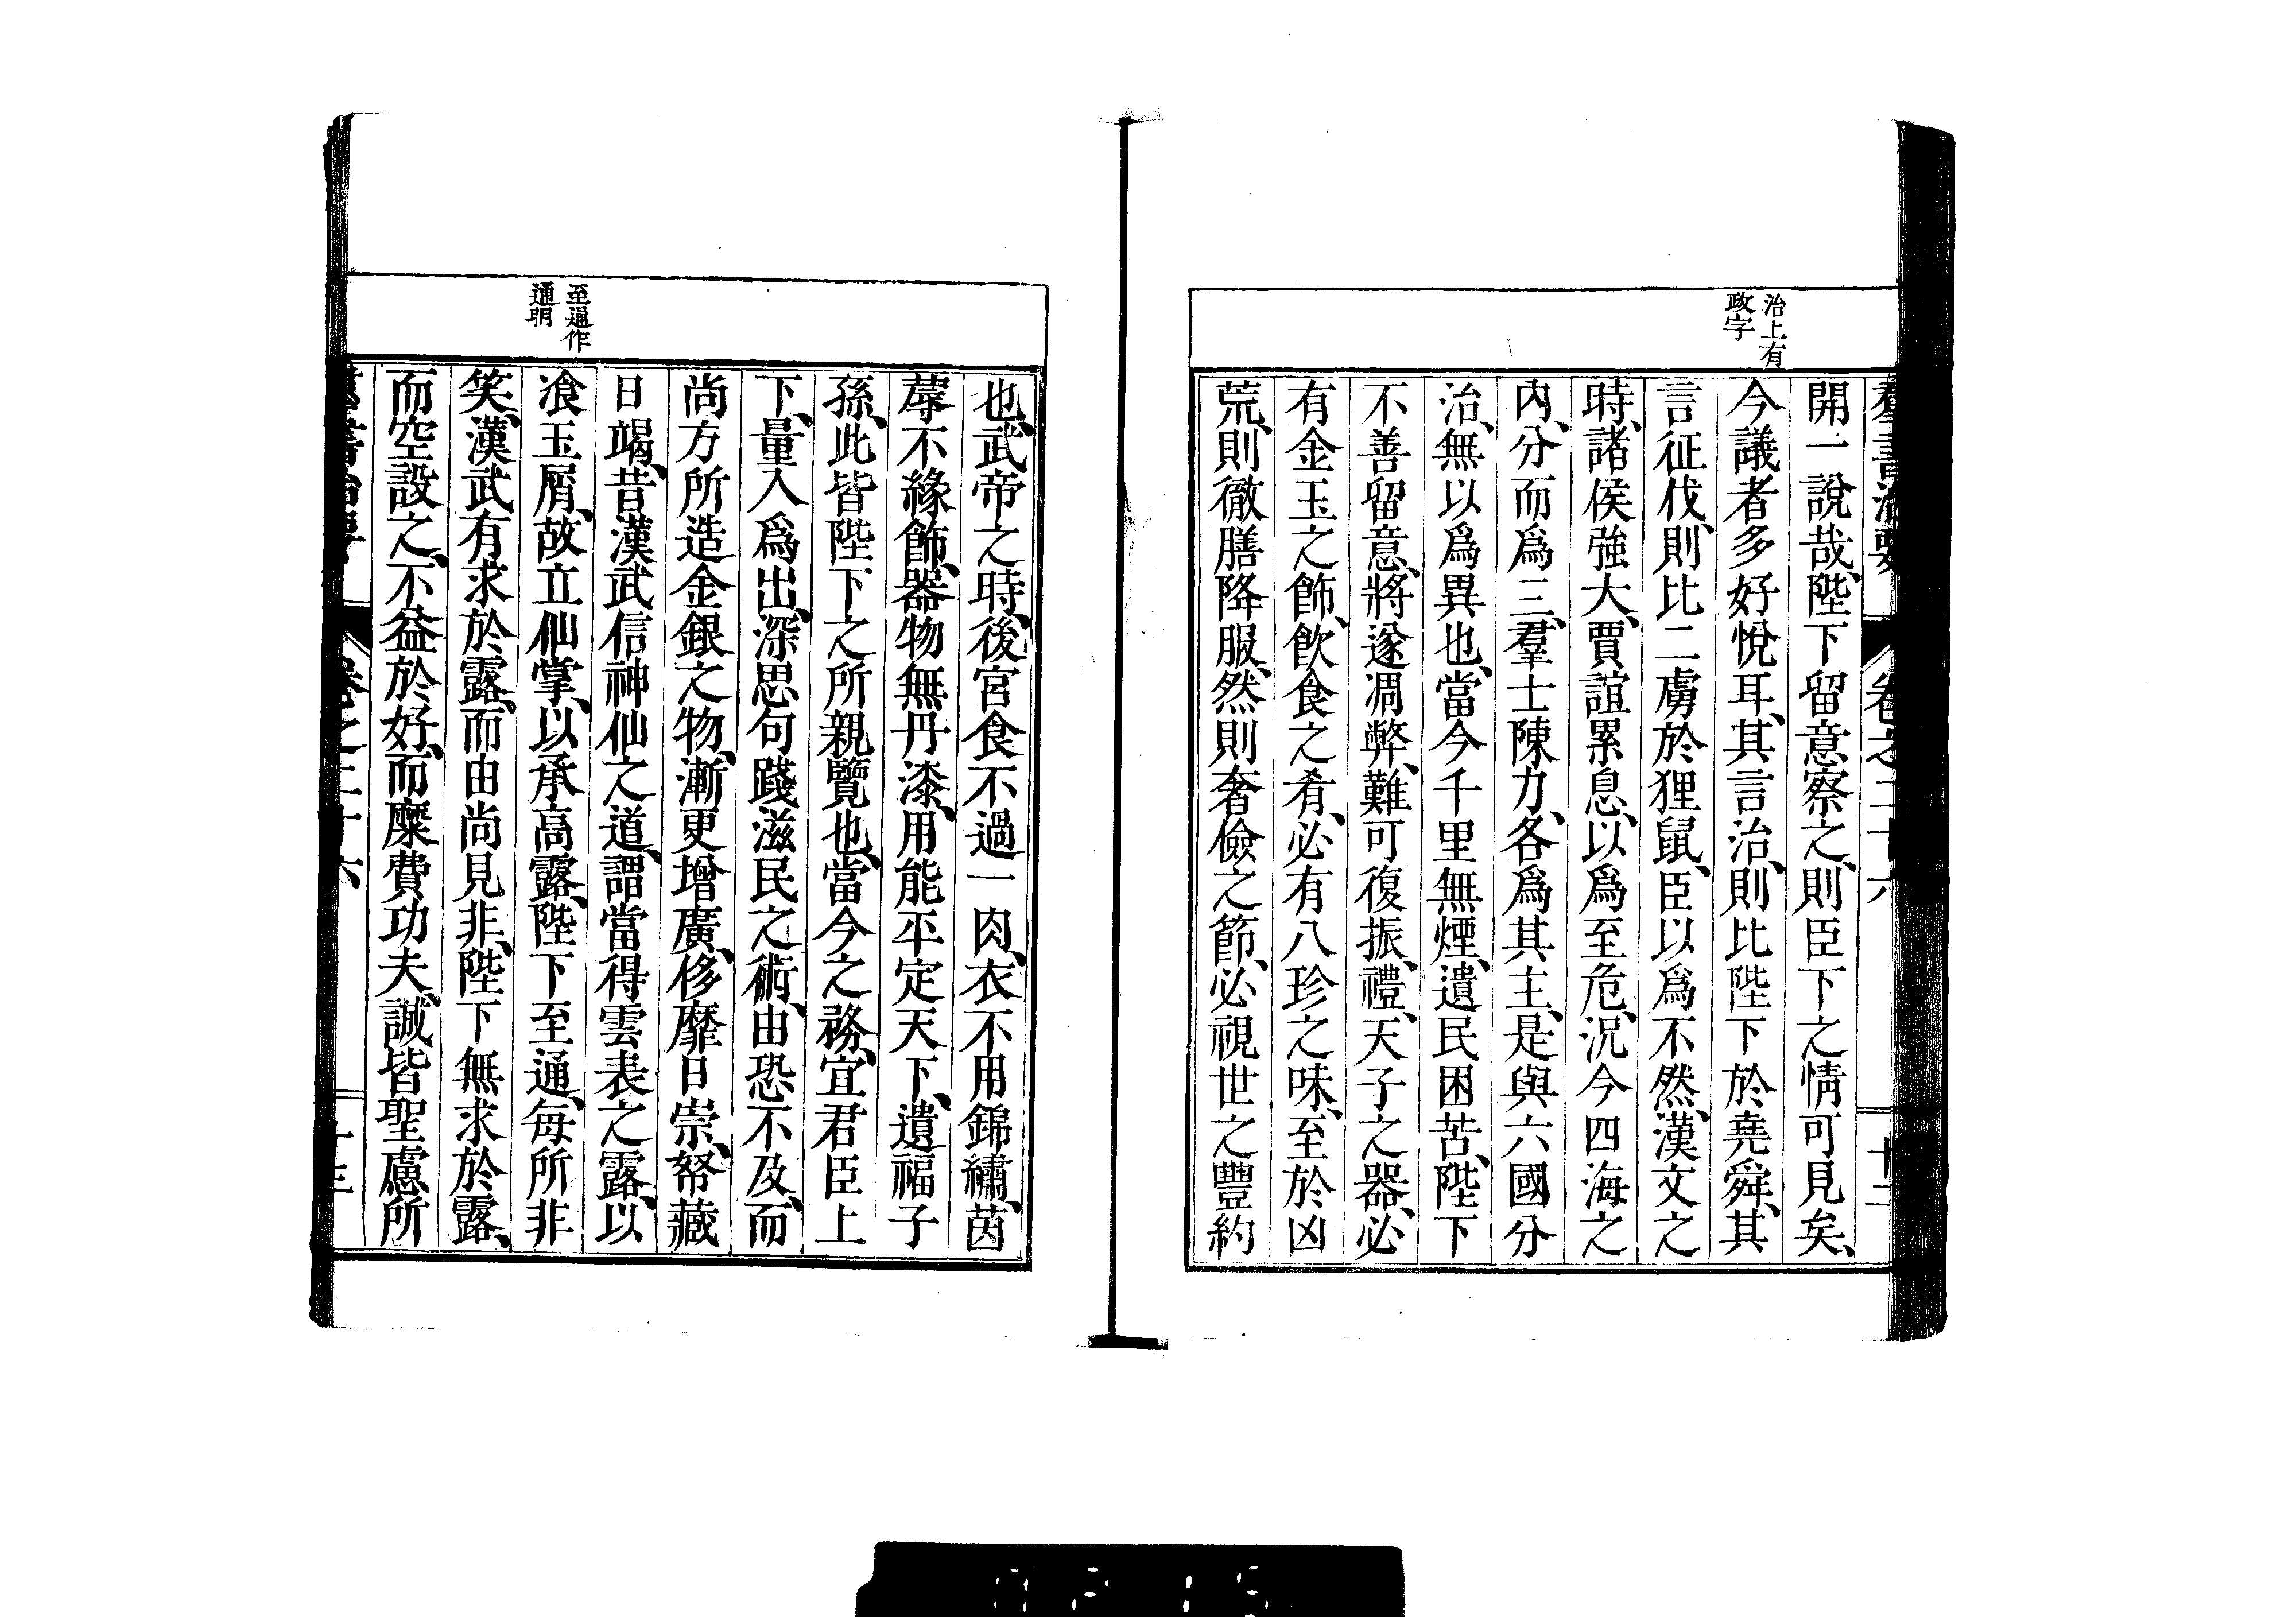 羣書治要　卷之二十六　十二
治上有
政字
開一說哉、陛下留意察之、則臣下之情可見矣、
今議者多好悅耳、其言治、則比陛下於堯舜、其
言征伐、則比二虜於狸鼠、臣以爲不然、漢文之
時、諸侯強大、賈誼累息、以爲至危、況今四海之
內、分而爲三、羣士陳力、各爲其主、是與六國分
治、無以爲異也、當今千里無煙、遺民困苦、陛下
不善留意、將遂凋弊、難可復振、禮、天子之器、必
有金玉之飾、飮食之肴、必有八珍之味、至於凶
荒、則徹膳降服、然則奢儉之節、必視世之豐約
至通作
通明
也、武帝之時、後宮食不過一肉、衣不用錦繡、茵
蓐不緣飾、器物無丹漆、用能平定天下、遺福子
孫、此皆陛下之所親覽也、當今之務、宜君臣上
下、量入爲出、深思句踐滋民之術、由恐不及、而
尚方所造金銀之物、漸更增廣、侈靡日崇、帑藏
日竭、昔漢武信神仙之道、謂當得雲表之露、以
飡玉屑、故立仙掌、以承高露、陛下至通、每所非
笑、漢武有求於露、而由尚見非、陛下無求於露、
而空設之、不益於好、而糜費功夫、誠皆聖慮所
羣書治要　卷之二十六　十三